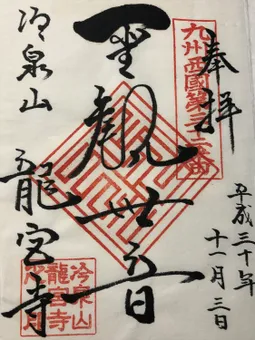 奉拝
九州西國第三十二番
平成三十年
十一月三日
聖観世音
冷泉山
龍宮寺
冷泉山
龍宮寺